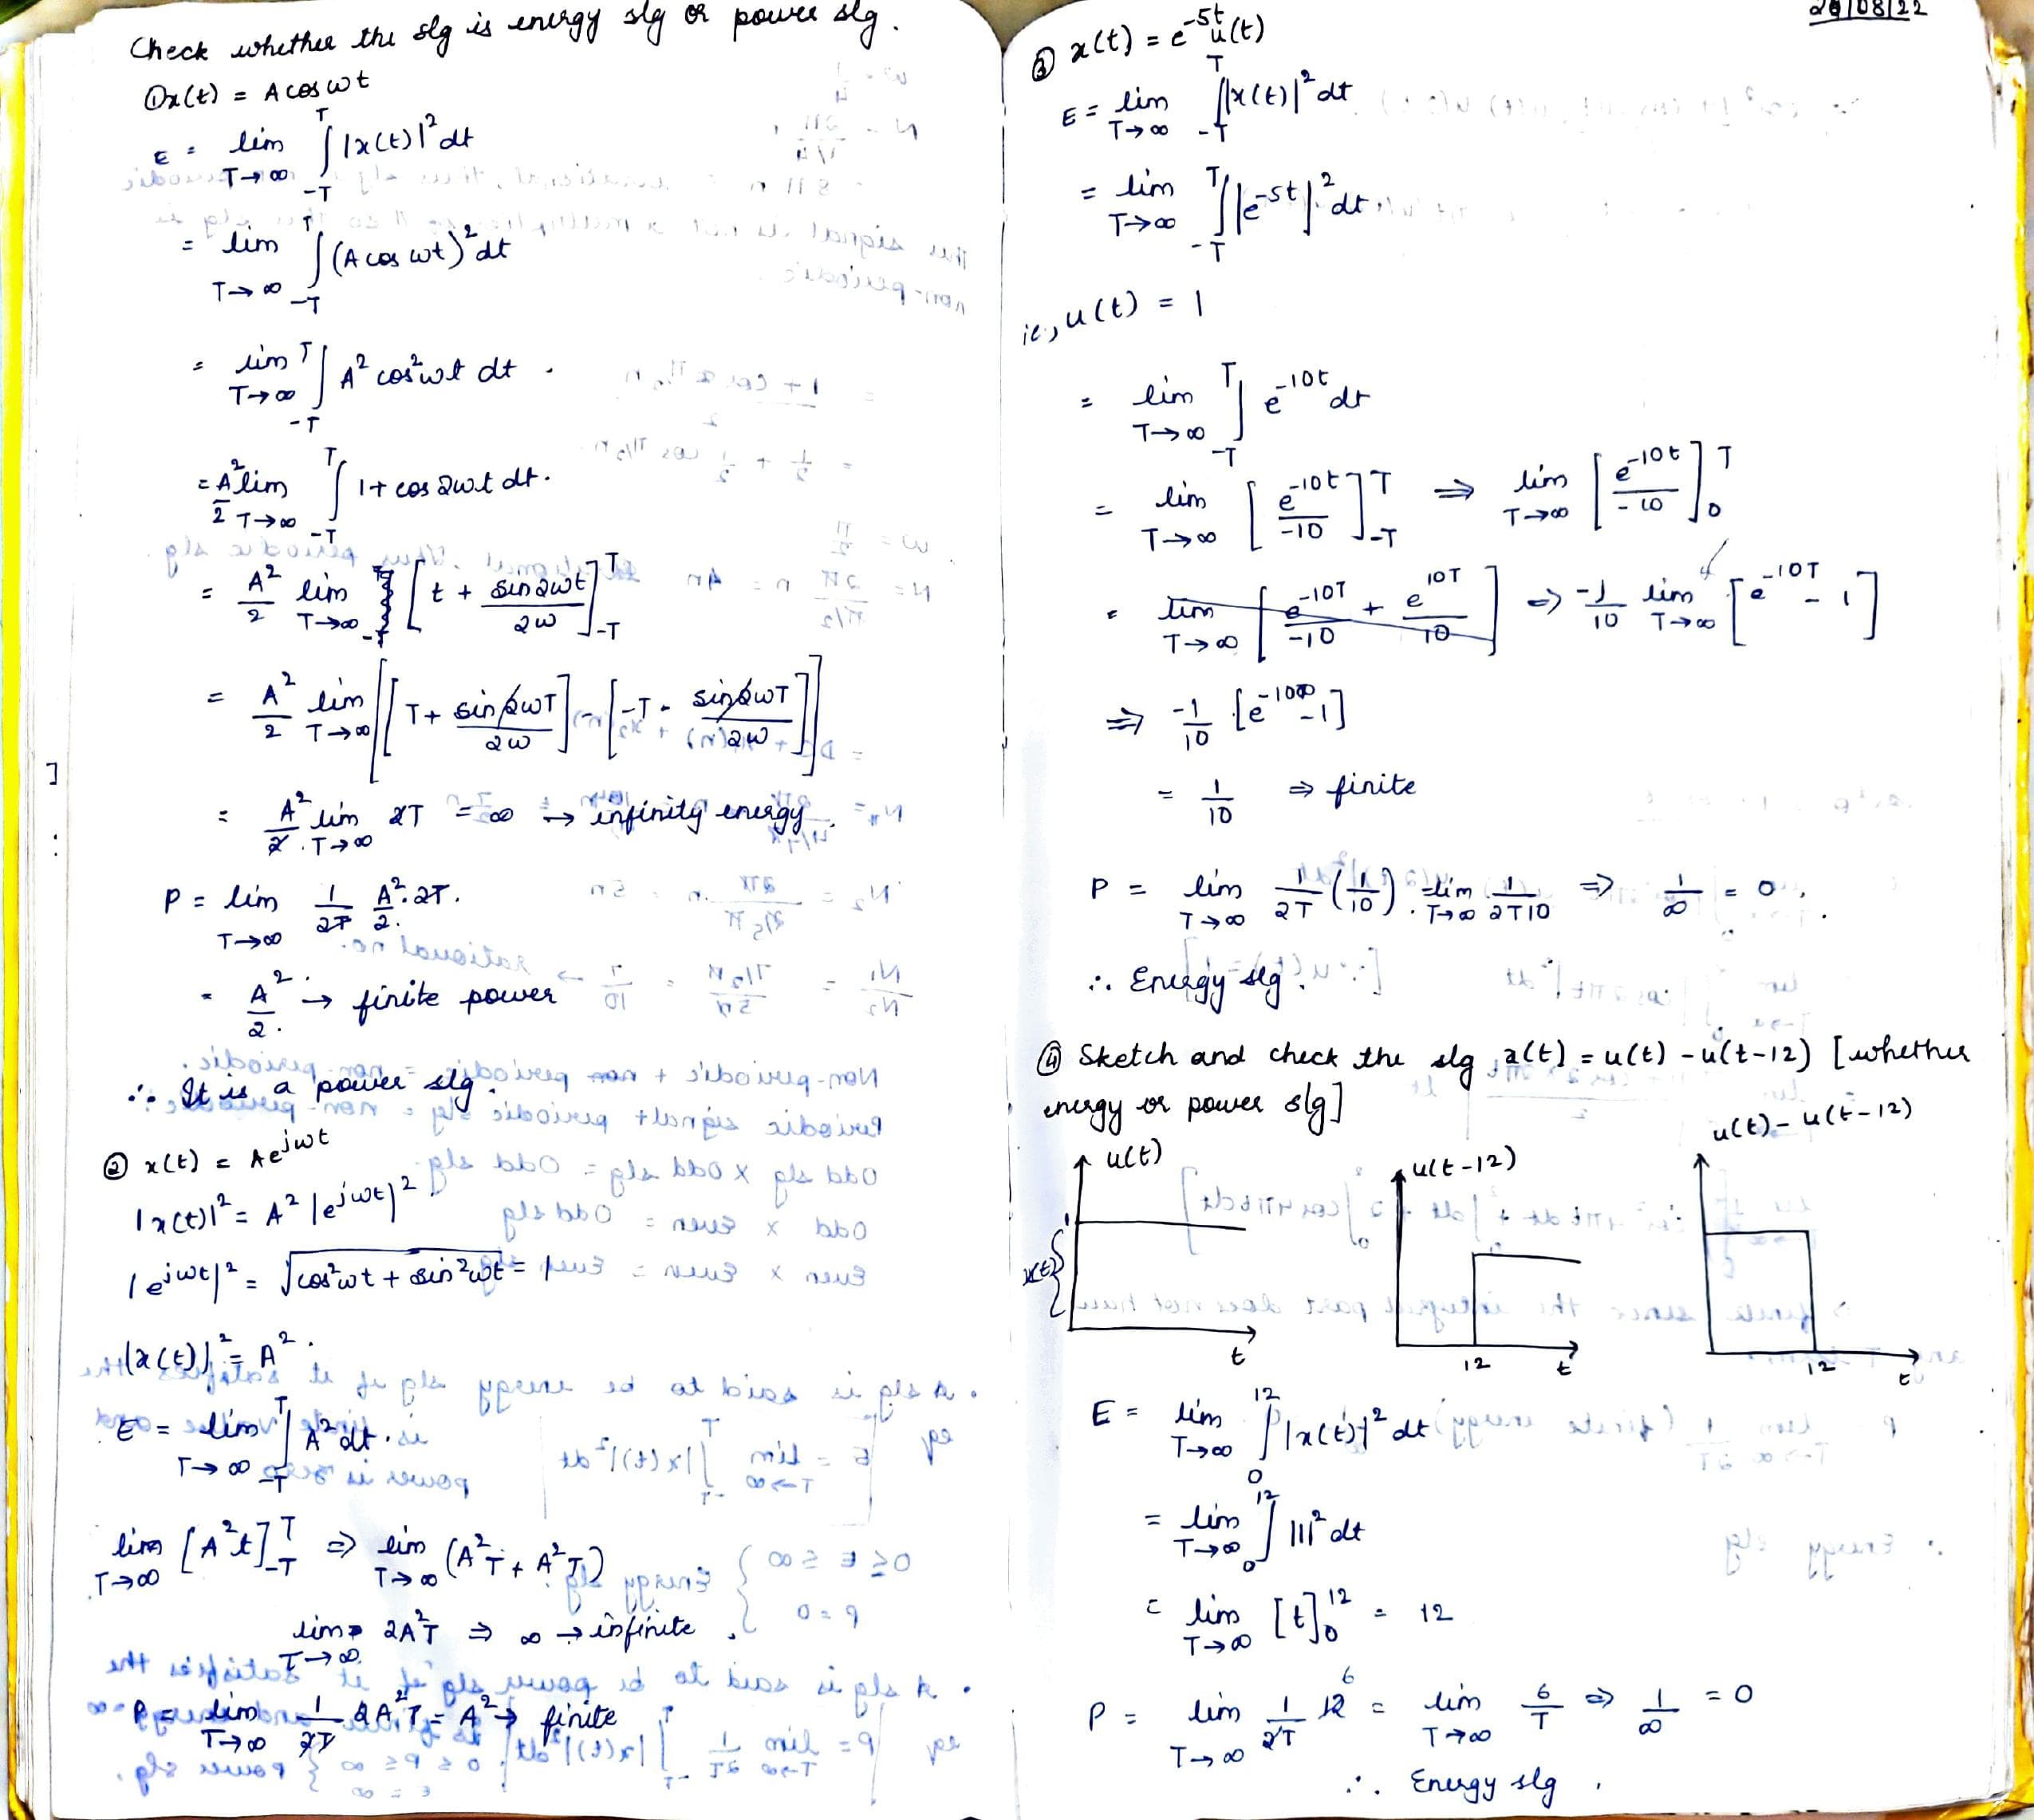 Check whether the slg is energy slg or power slg.
① x(t) = A cos wt
E = lim T→∞ ∫_{-T}^{T} |x(t)|² dt
= lim T→∞ ∫_{-T}^{T} (A cos wt)² dt
= lim T→∞ ∫_{-T}^{T} A² cos² wt dt.
= A²/2 lim T→∞ ∫_{-T}^{T} 1 + cos 2wt dt.
= A²/2 lim T→∞ [t + sin 2wt / 2w]_{-T}^{T}
= A²/2 lim T→∞ [[T + sin 2wT / 2w] - [-T - sin 2wT / 2w]]
= A²/2 . lim T→∞ 2T = ∞ → infinity energy.
P = lim T→∞ 1/2T A²/2 . 2T.
= A²/2 . → finite power
∴ It is a power slg.
② x(t) = A e^{jwt}
|x(t)|² = A² |e^{jwt}|²
|e^{jwt}|² = √(cos² wt + sin² wt) = 1
|x(t)|² = A².
E = lim T→∞ ∫_{-T}^{T} A² dt.
lim T→∞ [A² t]_{-T}^{T} ⇒ lim T→∞ (A² T + A² T)
lim T→∞ 2A² T ⇒ ∞ → infinite.
P = lim T→∞ 1/2T 2A² T = A² → finite
20/08/22
③ x(t) = e^{-5t} u(t)
E = lim T→∞ ∫_{-T}^{T} |x(t)|² dt
= lim T→∞ ∫_{-T}^{T} |e^{-5t}|² dt
ie, u(t) = 1
= lim T→∞ ∫_{-T}^{T} e^{-10t} dt
= lim T→∞ [e^{-10t} / -10]_{-T}^{T} ⇒ lim T→∞ [e^{-10t} / -10]_{0}^{T}
= lim T→∞ [e^{-10T} / -10 + e^{10T} / 10] ⇒ -1/10 lim T→∞ [e^{-10T} - 1]
⇒ -1/10 [e^{-10∞} - 1]
= 1/10 ⇒ finite
P = lim T→∞ 1/2T (1/10) . = lim T→∞ 1/2T10 ⇒ 1/∞ = 0.
∴ Energy slg.
④ Sketch and check the slg x(t) = u(t) - u(t-12) [whether
energy or power slg]
u(t) u(t-12) u(t) - u(t-12)
1
x(t)
t 12 t 12 t
E = lim T→∞ ∫_{0}^{12} |x(t)|² dt
= lim T→∞ ∫_{0}^{12} |1|² dt
= lim T→∞ [t]_{0}^{12} = 12
P = lim T→∞ 1/2T 12 6 = lim T→∞ 6/T ⇒ 1/∞ = 0
∴ Energy slg.